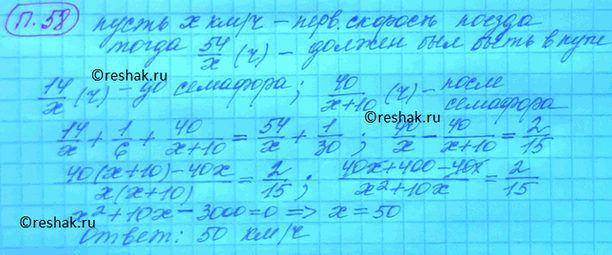 П.58 пусть x км/ч – перв. скорость поезда
тогда 54/x (ч) – должен был быть в пути
14/x (ч) – до семафора; 40/(x+10) (ч) – после семафора
©reshak.ru
©reshak.ru
14/x + 1/6 + 40/(x+10) = 54/x + 1/30; 40/x – 40/(x+10) = 2/15
(40(x+10)–40x)/(x(x+10)) = 2/15; (40x+400–40x)/(x²+10x) = 2/15
©reshak.ru
x²+10x–3000=0 => x=50
Ответ: 50 км/ч